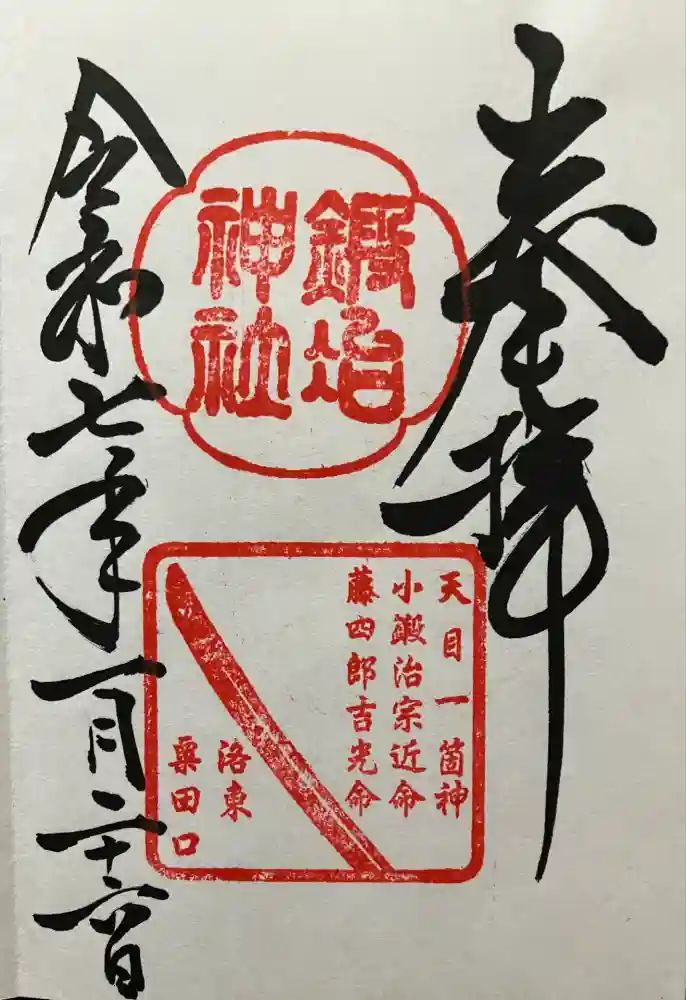 奉拝
鍛冶
神社
天目一箇神
小鍛冶宗近命
藤四郎吉光命
洛東
粟田口
令和七年一月二十六日